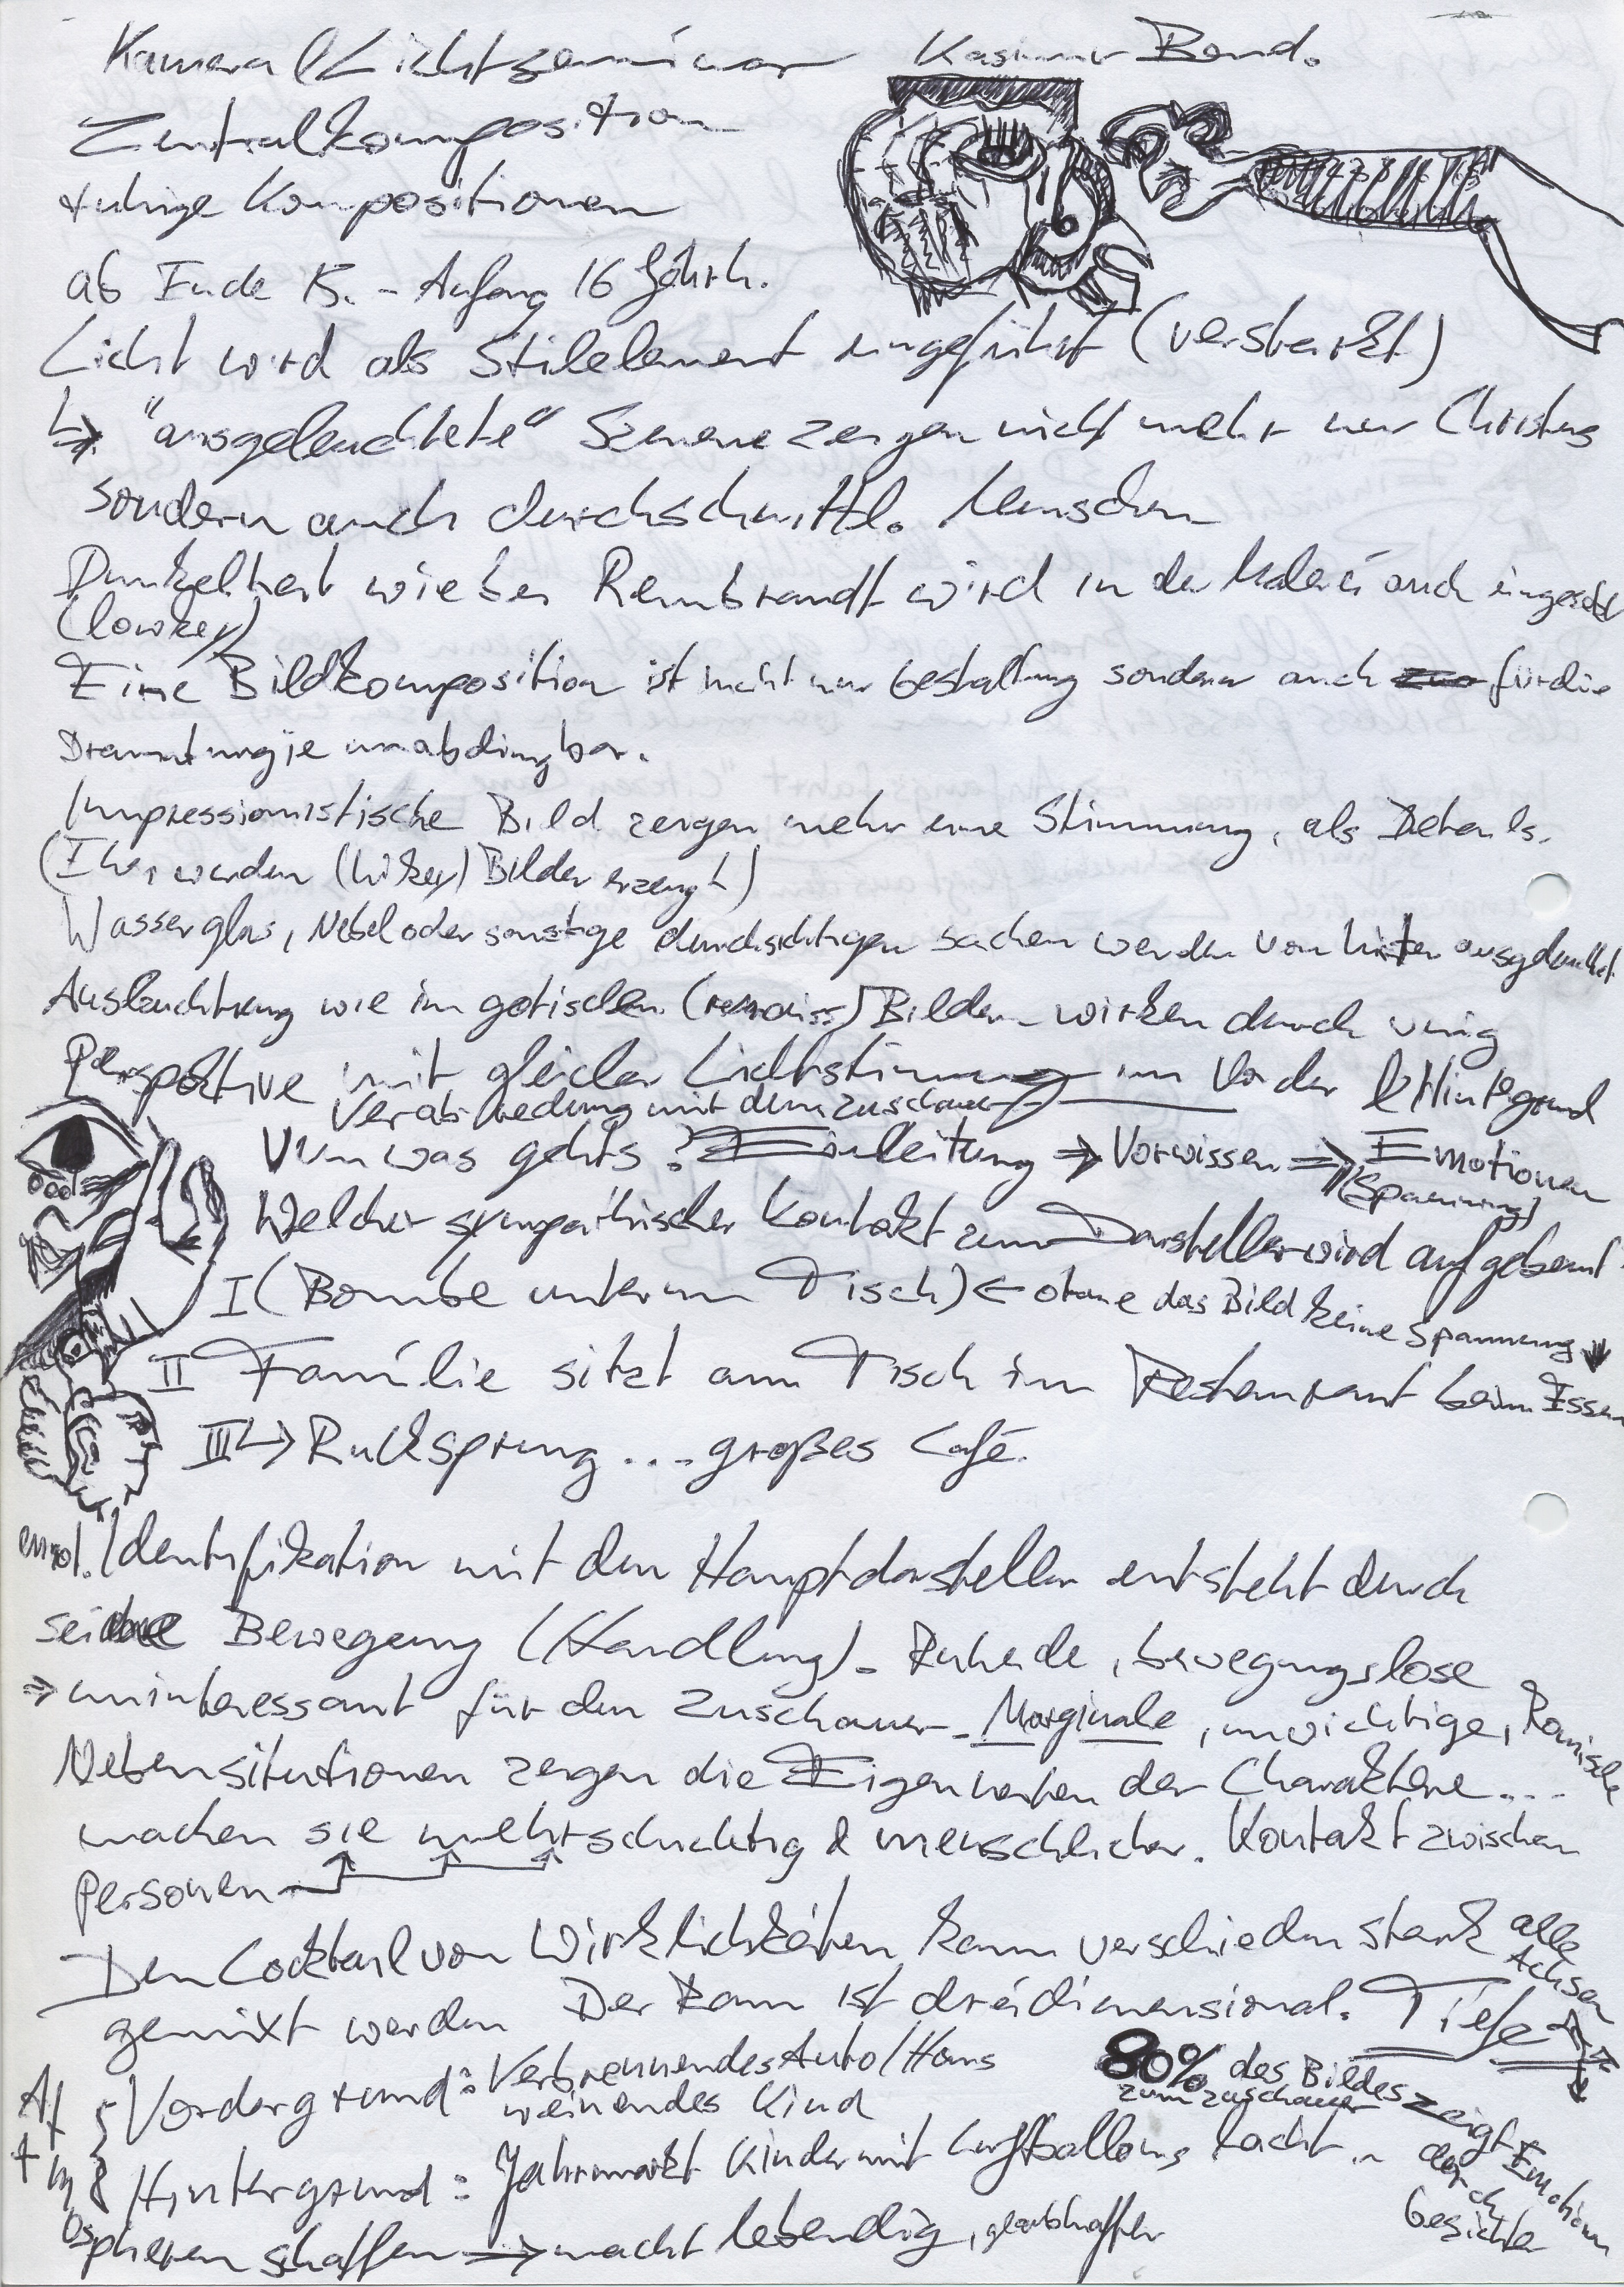 Kamera/Lichtseminar Kasimir Bond.
Zentralkomposition
ruhige Kompositionen
ab Ende 15. - Anfang 16 Jahrh.
Licht wird als Stilelement eingeführt (verstärkt)
↳ "ausgeleuchtete" Szenen zeigen nicht mehr nur Christus
sondern auch durchschnittl. Menschen
Dunkelheit wie bei Rembrandt wird in der Malerei auch eingesetzt
(lowkey)
Eine Bildkomposition ist nicht nur Gestaltung sondern auch für die
Dramaturgie unabdingbar.
Impressionistische Bild zeigen mehr eine Stimmung, als Details.
(Hier werden (hikey) Bilder erzeugt)
Wasserglas, Nebel oder sonstige durchsichtigen sachen werden von hinten ausgeleuchtet
Ausleuchtung wie im gotischen (renaiss) Bildern wirken durch
Perspektive mit gleicher Lichtstimmung im Vorder & Hintegrund
Verabredung mit dem Zuschauer
Um was gehts? Einleitung ⇒ Vorwissen ⇒ Emotionen
(Spannung)
Welcher sympathischer Kontakt zum Darsteller wird aufgebaut
I (Bombe unterm Tisch) ← ohne das Bild keine Spannung ↓
II Familie sitzt am Tisch im Restaurant beim Essen
III ↳ Ruksprung .... großes Café.
emot. Identifikation mit dem Hauptdarsteller entsteht durch
seine Bewegung (Handlung). Ruhende, bewegungslose
⇒ uninteressant für den Zuschauer. Marginale, unwichtige,
Nebensitutionen zeigen die Eigenheiten der Charaktere...
machen sie mehrschichtig & menschlicher. Kontakt zwischen
Personen
Den Cocktail von Wirklichkeiten kann verschieden stark
gemixt werden Der Raum ist dreidimensional. Tiefe
alle
Achsen
Vordergrund: Verbrennendes Auto/Haus
weinendes Kind
80% des Bildes zeigt Emotion
zum Zuschauer
durch
Gesichter
Hintergrund: Jahrmarkt Kinder mit Luftballons lacht..
Atmosphären schaffen ⇒ macht lebendig, glaubhafter